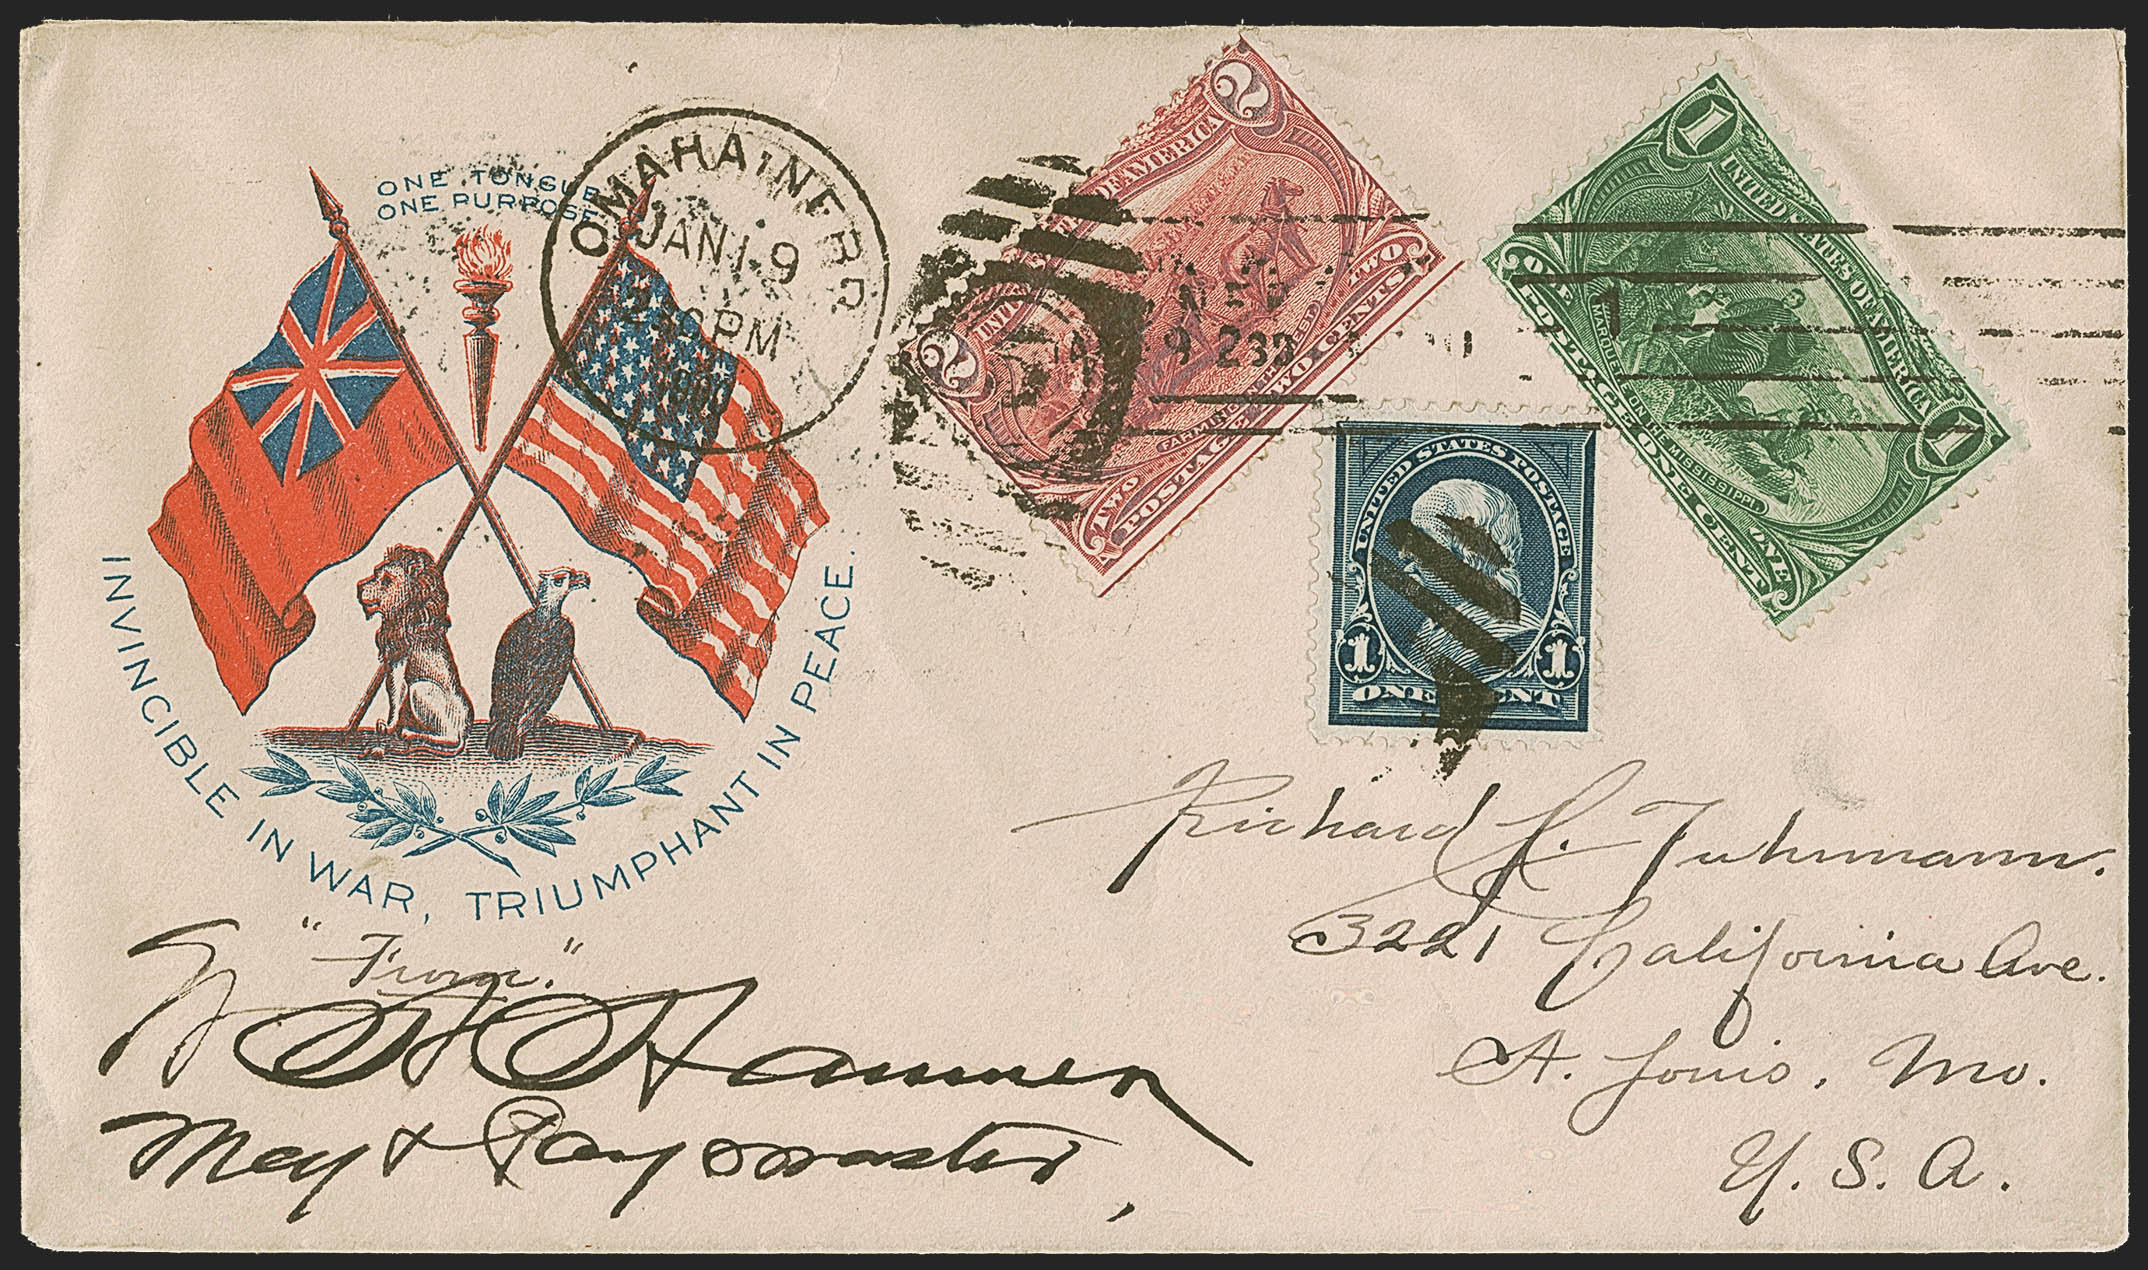 ONE TONGUE
ONE PURPOSE
INVINCIBLE IN WAR, TRIUMPHANT IN PEACE.
OMAHA, NEBR
JAN 19
2 30 PM
2
UNITED STATES OF AMERICA
FARMING IN THE WEST
TWO TWO
POSTAGE TWO CENTS
2
9 230
1
UNITED STATES OF AMERICA
MARQUETTE ON THE MISSISSIPPI
ONE ONE
POSTAGE ONE CENT
1
1
UNITED STATES POSTAGE
1 1
ONE CENT
Richard L. Fuhrmann.
3221 California Ave.
St. Louis, Mo.
U. S. A.
"From."
Maj & Paymaster,